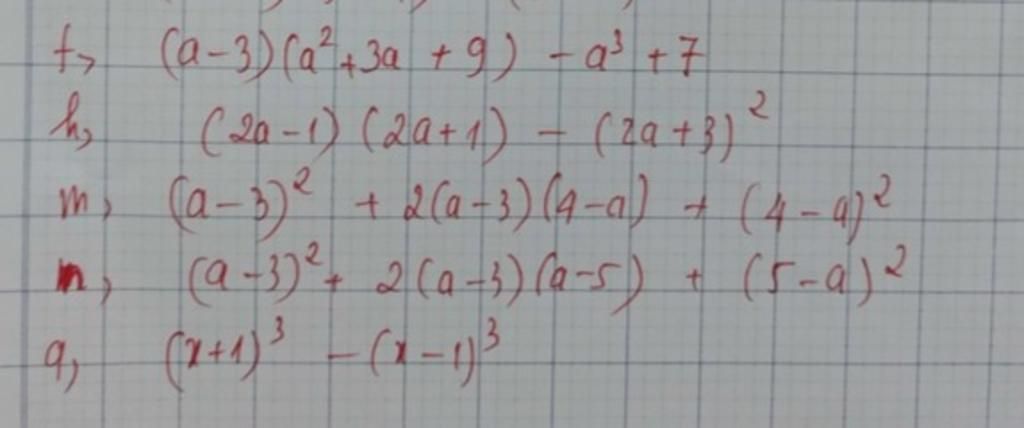 f, (a-3)(a²+3a+9) - a³ + 7
h, (2a-1)(2a+1) - (2a+3)²
m, (a-3)² + 2(a-3)(4-a) + (4-a)²
n, (a-3)² + 2(a-3)(a-5) + (5-a)²
q, (x+1)³ - (x-1)³